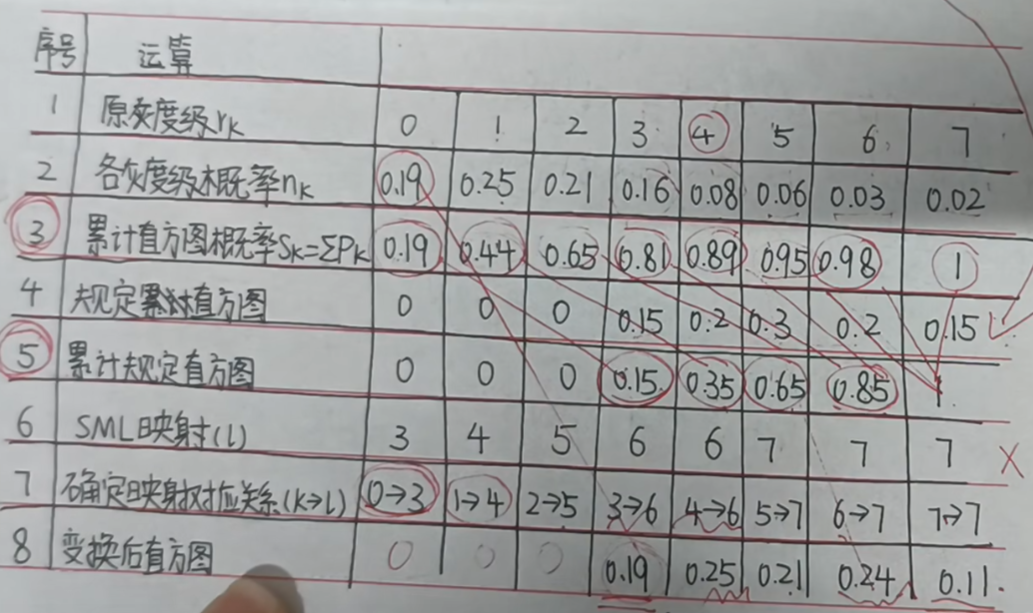 序号 运算
1 原灰度级rk 0 1 2 3 4 5 6 7
2 各灰度级概率nk 0.19 0.25 0.21 0.16 0.08 0.06 0.03 0.02
3 累计直方图概率Sk=ΣPk 0.19 0.44 0.65 0.81 0.89 0.95 0.98 1
4 规定累计直方图 0 0 0 0.15 0.2 0.3 0.2 0.15
5 累计规定直方图 0 0 0 0.15 0.35 0.65 0.85 1
6 SML映射(l) 3 4 5 6 6 7 7 7
7 确定映射对应关系(k→l) 0→3 1→4 2→5 3→6 4→6 5→7 6→7 7→7
8 变换后直方图 0 0 0 0.19 0.25 0.21 0.24 0.11